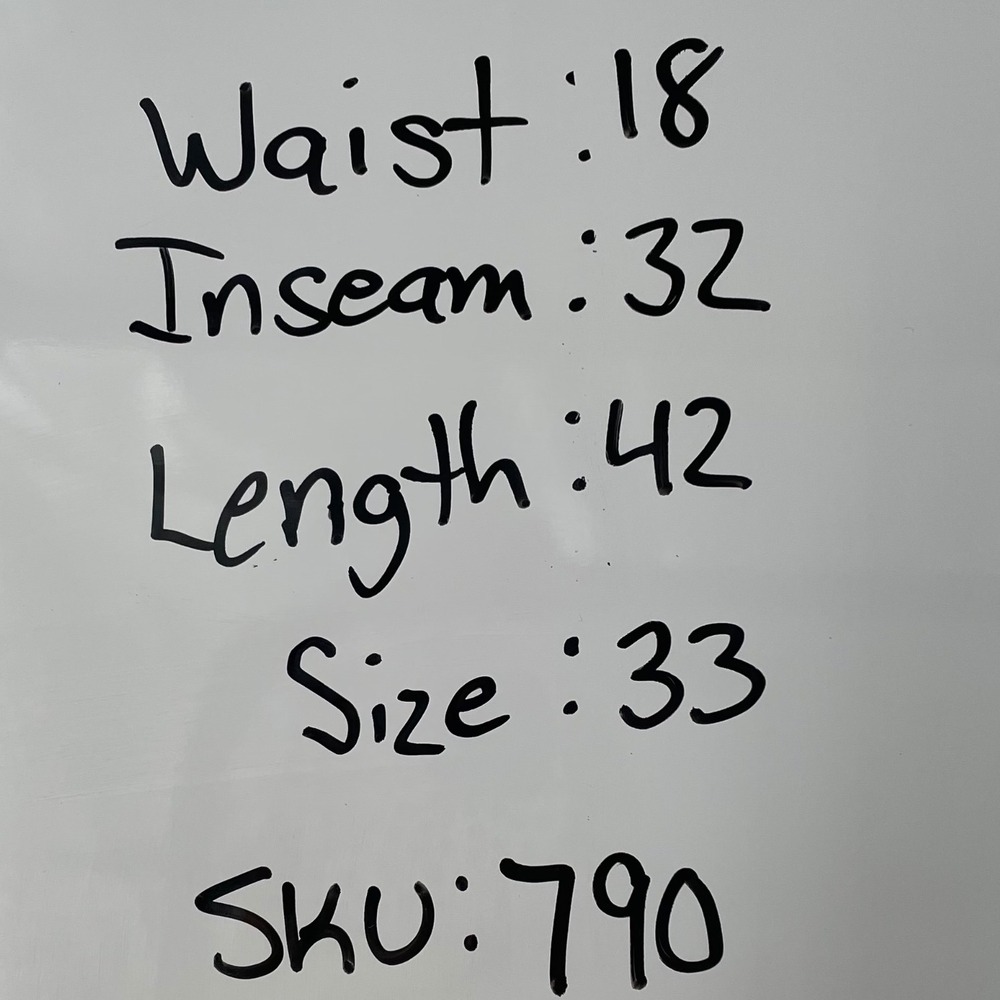 Waist : 18
Inseam : 32
Length : 42
Size : 33
SKU: 790